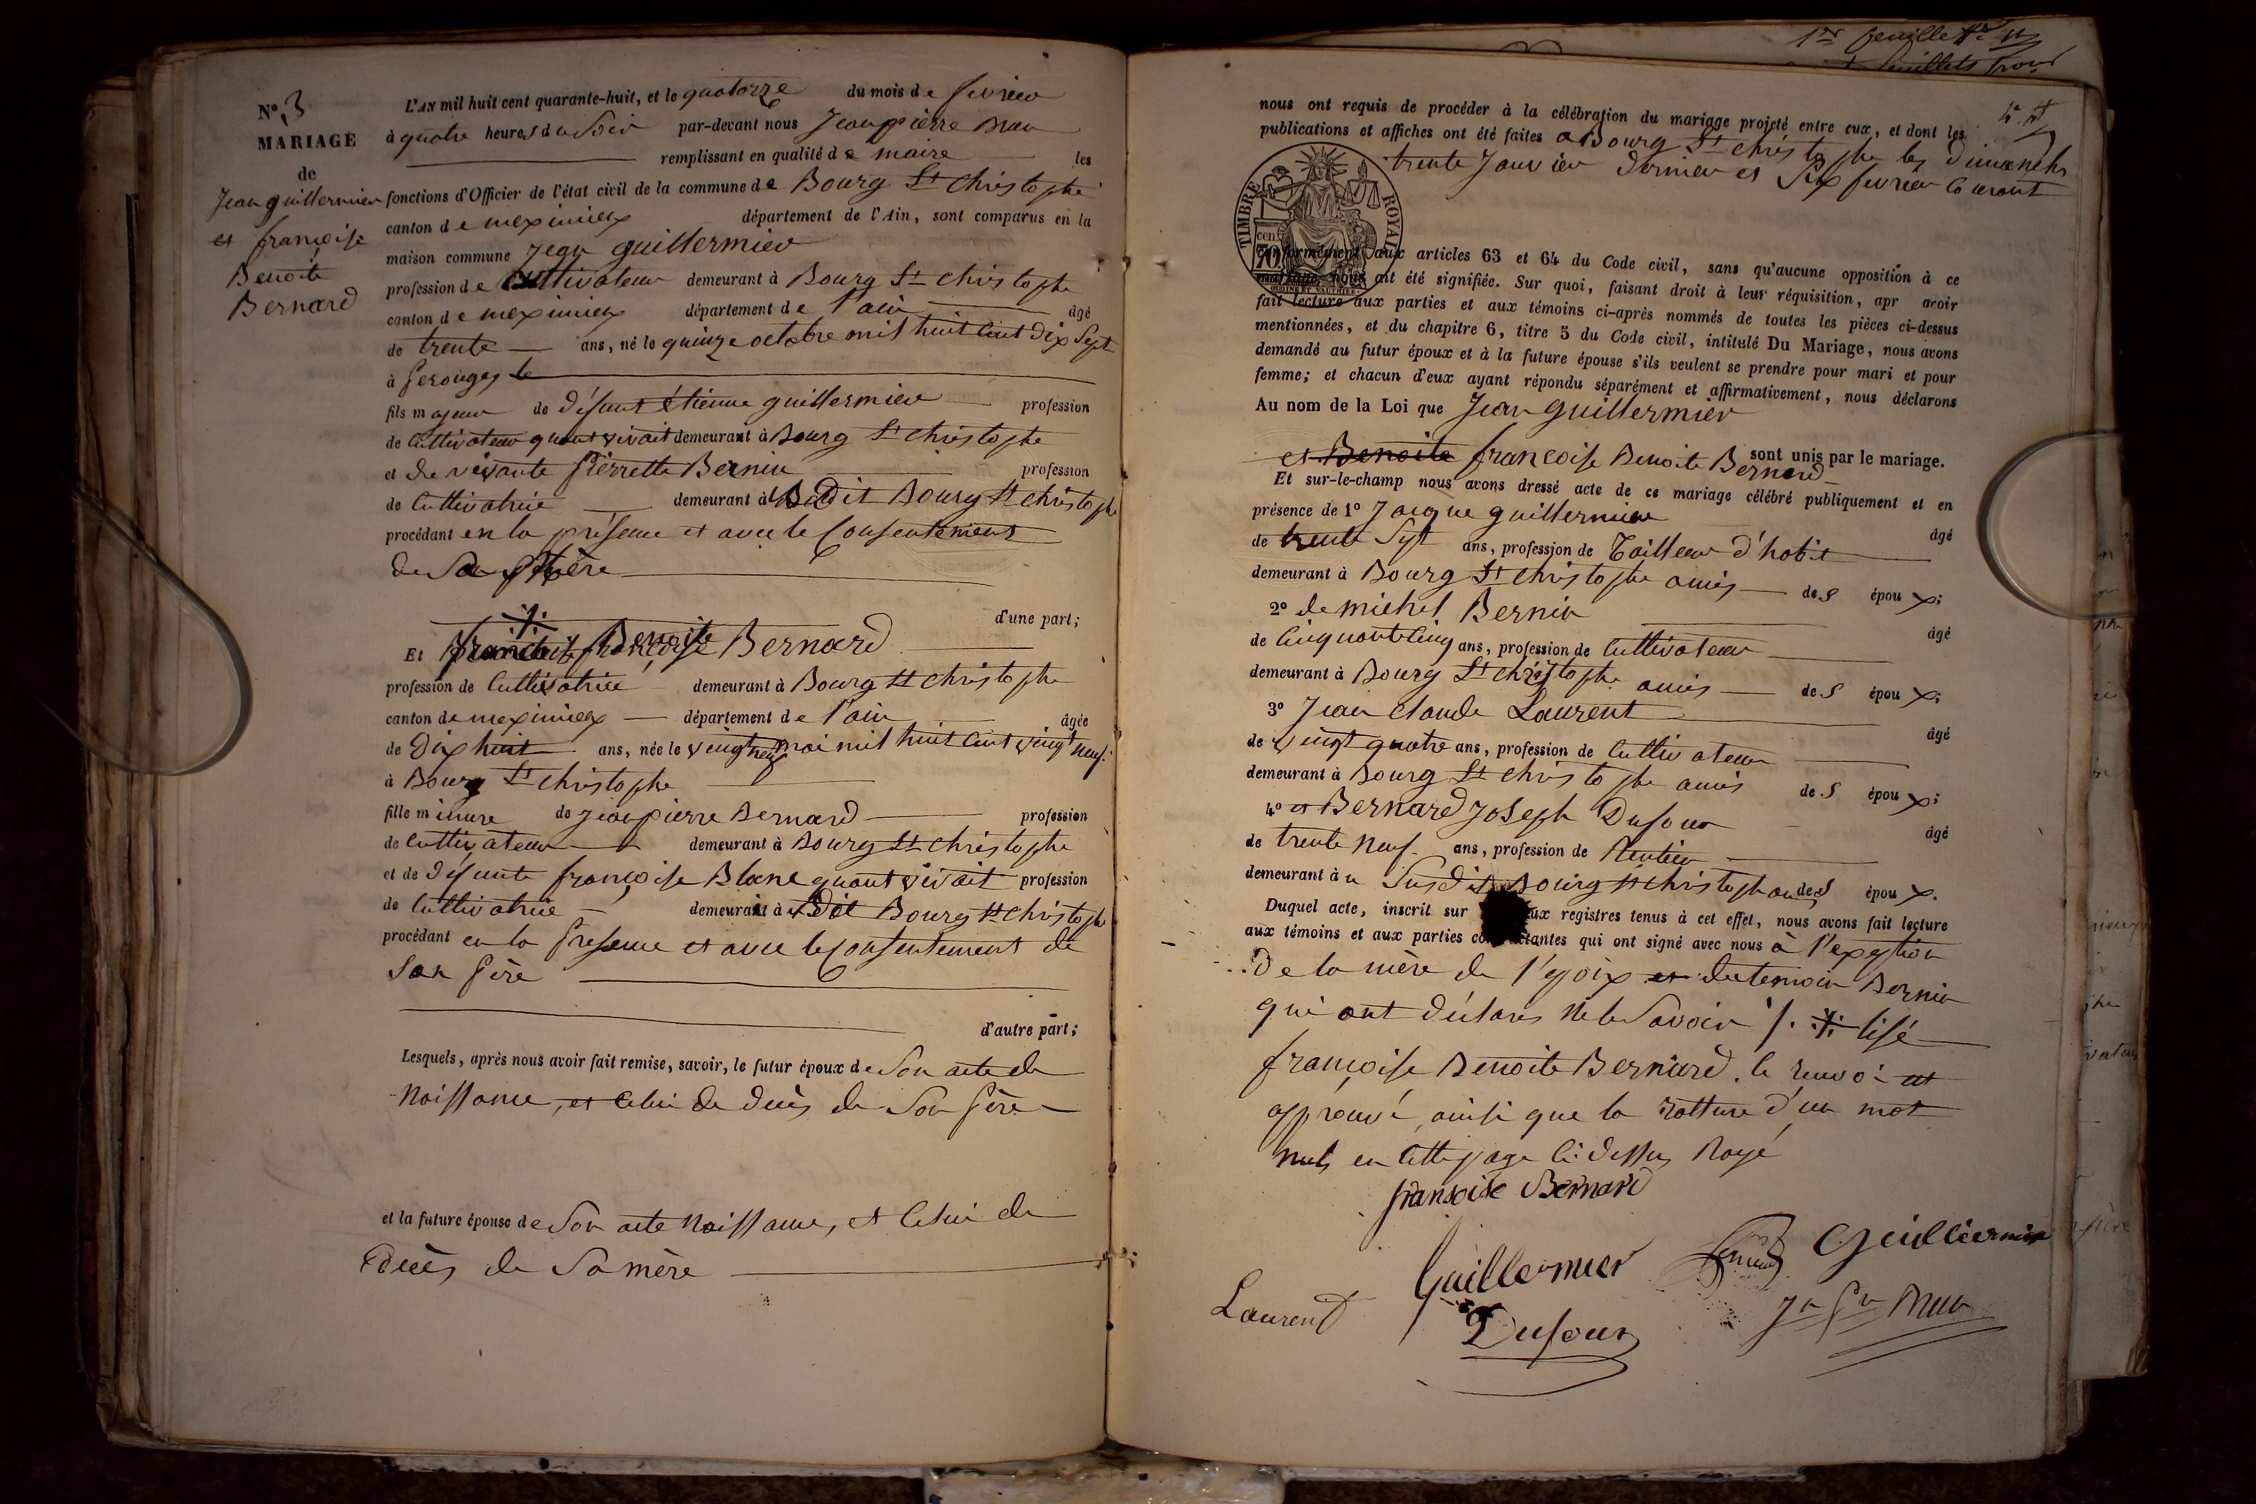 N.º 3
MARIAGE
de
Jean guillermier
et françoise
Benoite
Bernard
L'AN mil huit cent quarante-huit, et le quatorze du mois de fevrier
à quatre heures du Soir par-devant nous Jean pierre
remplissant en qualité de maire les
fonctions d'Officier de l'état civil de la commune de Bourg St christophe
canton de meximieux département de l'Ain, sont comparus en la
maison commune Jean guillermier
profession de Cultivateur demeurant à Bourg St christophe
canton de meximieux département de l'ain âgé
de trente ans, né le quinze octobre mil huit Cent Dix Sept
à perouges le
fils majeur de Défunt étienne guillermier profession
de Cultivateur quant vivait demeurant à Bourg St christophe
et de vivante pierrette Bernin profession
de Cultivatrice demeurant à Dit Bourg St christophe
procédant en la présence et avec le Consentement
de Sa mère
d'une part;
Et françoise Bernard
profession de Cultivatrice demeurant à Bourg St christophe
canton de meximieux département de l'ain âgée
de Dix huit ans, née le vingt neuf mai mil huit Cent vingt neuf
à Bourg St christophe
fille mineure de Jean pierre Bernard profession
de Cultivateur demeurant à Bourg St christophe
et de Défunte françoise Blanc quant vivait profession
de Cultivatrice demeurant à u Dit Bourg St christophe
procédant en la presence et avec le Consentement de
Son père
d'autre part;
Lesquels, après nous avoir fait remise, savoir, le futur époux de Son acte de
Naissance, et Celui de Deces de Son père
et la future épouse de Son acte Naissance, et Celui de
Décès de Sa mère
1er feuillet
nous ont requis de procéder à la célébration du mariage projeté entre eux, et dont les
publications et affiches ont été faites a Bourg St christophe les Dimanche
trente Janvier Dernier et Six fevrier Courant
TIMBRE ROYAL
70
conformément aux articles 63 et 64 du Code civil, sans qu'aucune opposition à ce
mariage nous ait été signifiée. Sur quoi, faisant droit à leur réquisition, apr avoir
fait lecture aux parties et aux témoins ci-après nommés de toutes les pièces ci-dessus
mentionnées, et du chapitre 6, titre 5 du Code civil, intitulé Du Mariage, nous avons
demandé au futur époux et à la future épouse s'ils veulent se prendre pour mari et pour
femme; et chacun d'eux ayant répondu séparément et affirmativement, nous déclarons
Au nom de la Loi que Jean guillermier
et Benoite françoise Benoite Bernard sont unis par le mariage.
Et sur-le-champ nous avons dressé acte de ce mariage célébré publiquement et en
présence de 1º Jacque guillermier âgé
de trente Sept ans, profession de Tailleur d'habit
demeurant à Bourg St christophe amis des époux;
2º de michel Bernin âgé
de Cinquante Cinq ans, profession de Cultivateur
demeurant à Bourg St christophe amis des époux;
3º Jean claude Laurent âgé
de vingt quatre ans, profession de Cultivateur
demeurant à Bourg St christophe amis des époux;
4º et Bernard Joseph Dufour âgé
de trente Neuf ans, profession de Rentier
demeurant à u Susdit Bourg St christophe des époux.
Duquel acte, inscrit sur ux registres tenus à cet effet, nous avons fait lecture
aux témoins et aux parties co tantes qui ont signé avec nous à l'exeption
De la mère de l'epoux et du temoin Bernin
qui ont déclaré Ne le Savoir ·/. lisé
françoise Benoite Bernard. le renvoi
approuvé ainsi que la ratture d'un mot
nul en Cette page Ci-dessus Rayé
franscise Bernard
Guillermier
Guilliermier
Laurent
Dufour